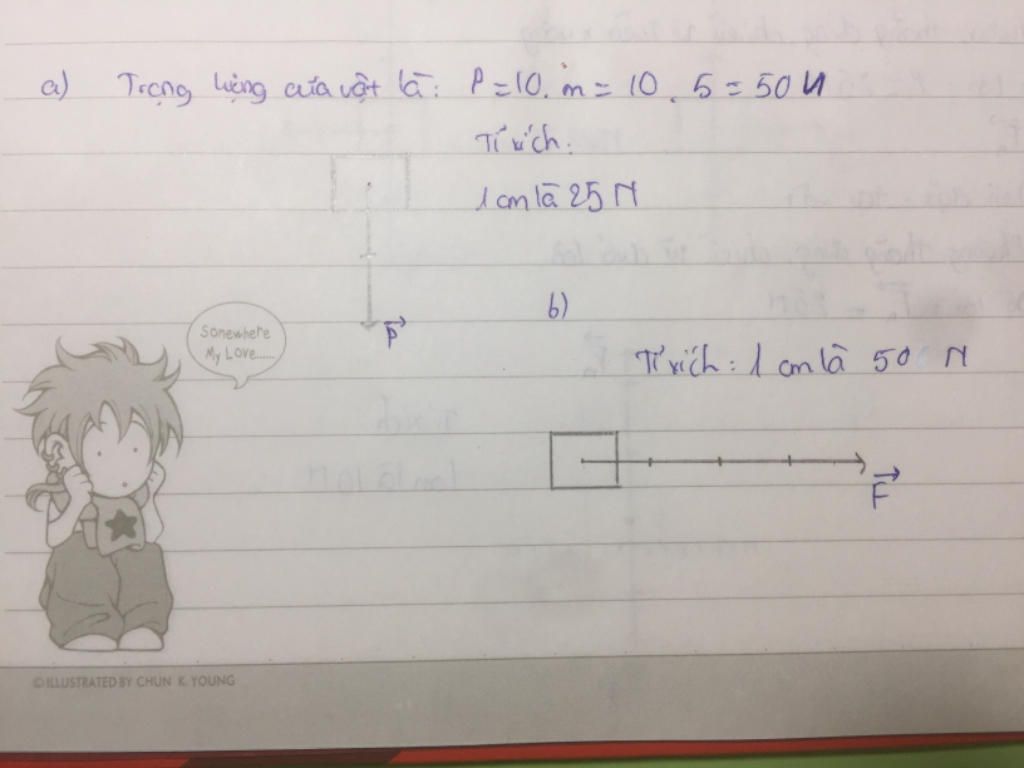 a) Trọng lượng của vật là: P = 10. m = 10 . 5 = 50 N
Tỉ xích:
1 cm là 25 N
P
b)
Tỉ xích: 1 cm là 500 N
F
Somewhere
My Love......
©ILLUSTRATED BY CHUN K. YOUNG